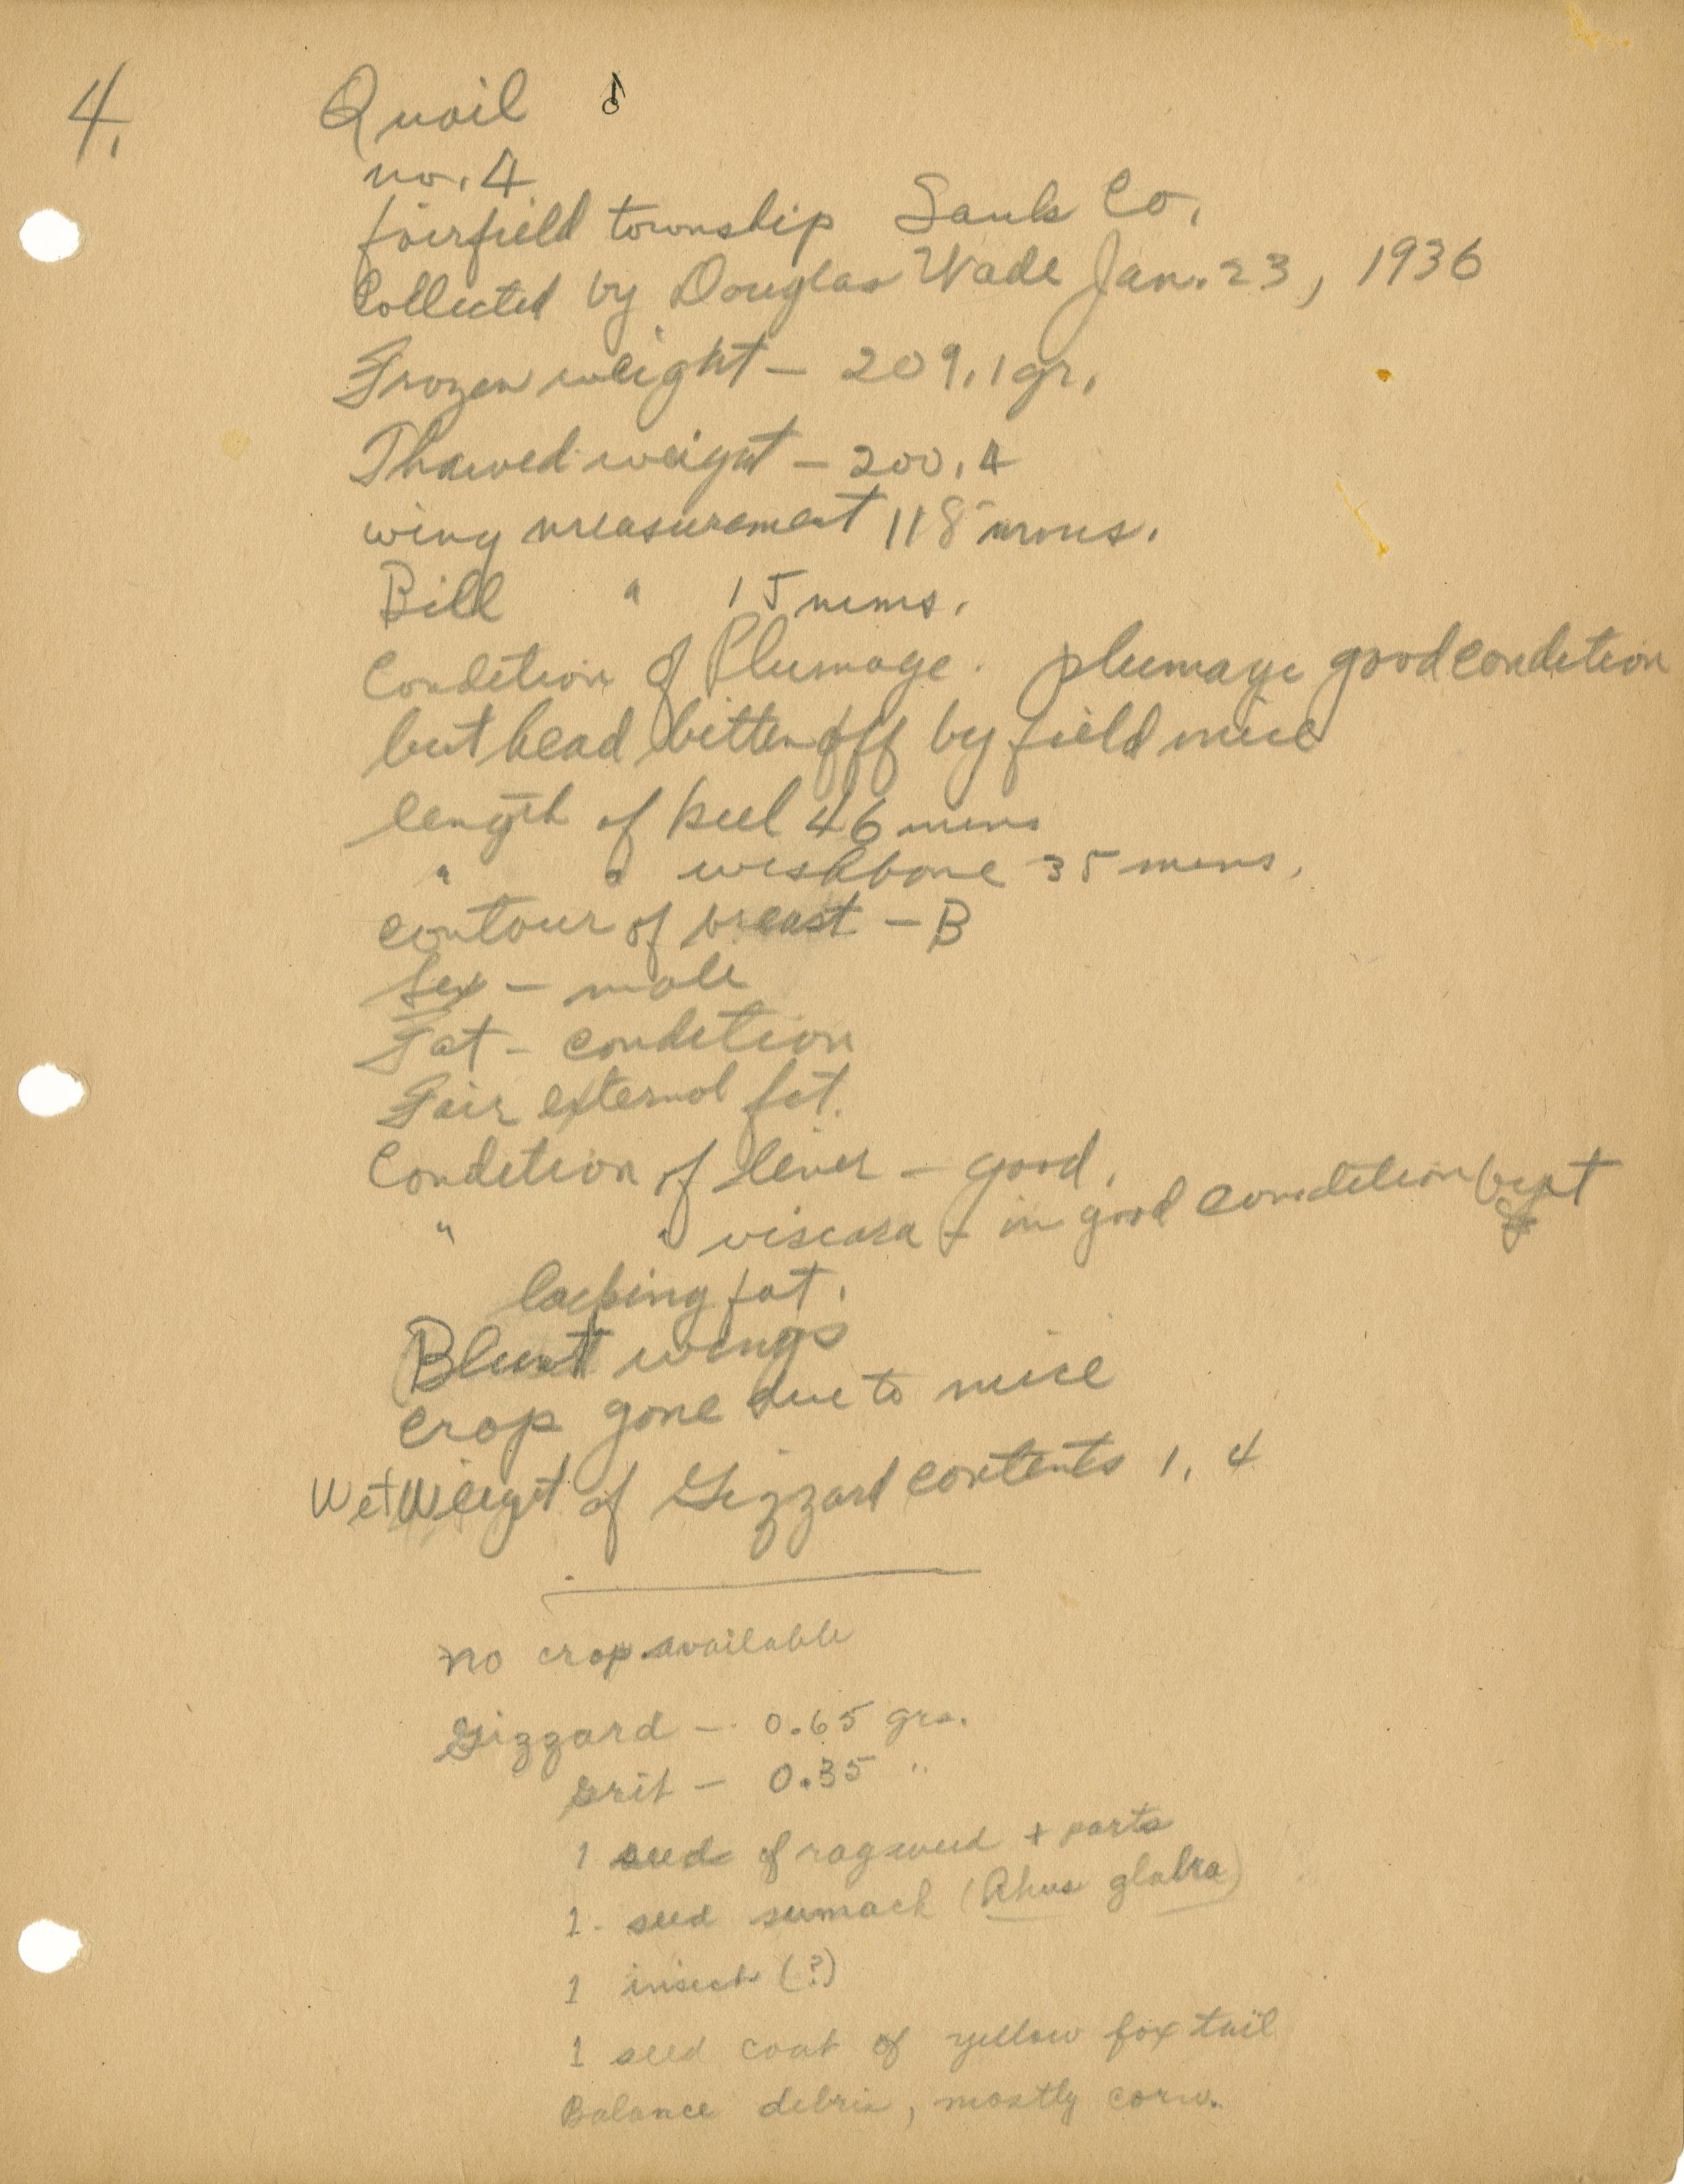 4.
Quail ♂
no. 4
fairfield township Sauk Co.
Collected by Douglas Wade Jan. 23, 1936
Frozen weight – 209.1 gr.
Thawed weight – 200.4
wing measurement 118 mms.
Bill " 15 mms.
Condition of Plumage. plumage good condition
but head bitten off by field mice
length of keel 46 mms
" " wishbone 35 mms.
contour of breast – B
Sex – male
Fat – condition
Fair external fat.
Condition of liver – good.
" " viscara – in good condition but
lacking fat.
Blunt wings
crop gone due to mice
Wet Weight of Gizzard contents 1.4
No crop available
Gizzard – 0.65 grs.
Grit – 0.35 "
1 seed of ragweed + parts
1 - seed sumach (Rhus glabra)
1 insect (?)
1 seed coat of yellow fox tail
Balance debris, mostly corn.